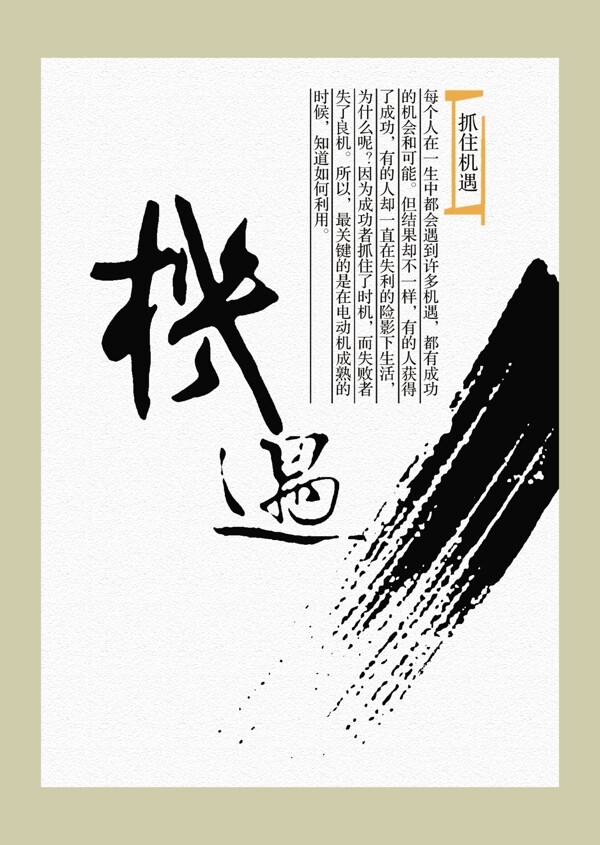 抓住机遇
每个人在一生中都会遇到许多机遇，都有成功
的机会和可能。但结果却不一样，有的人获得
了成功，有的人却一直在失利的险影下生活，
为什么呢？因为成功者抓住了时机，而失败者
失了良机。所以，最关键的是在电动机成熟的
时候，知道如何利用。
机
遇